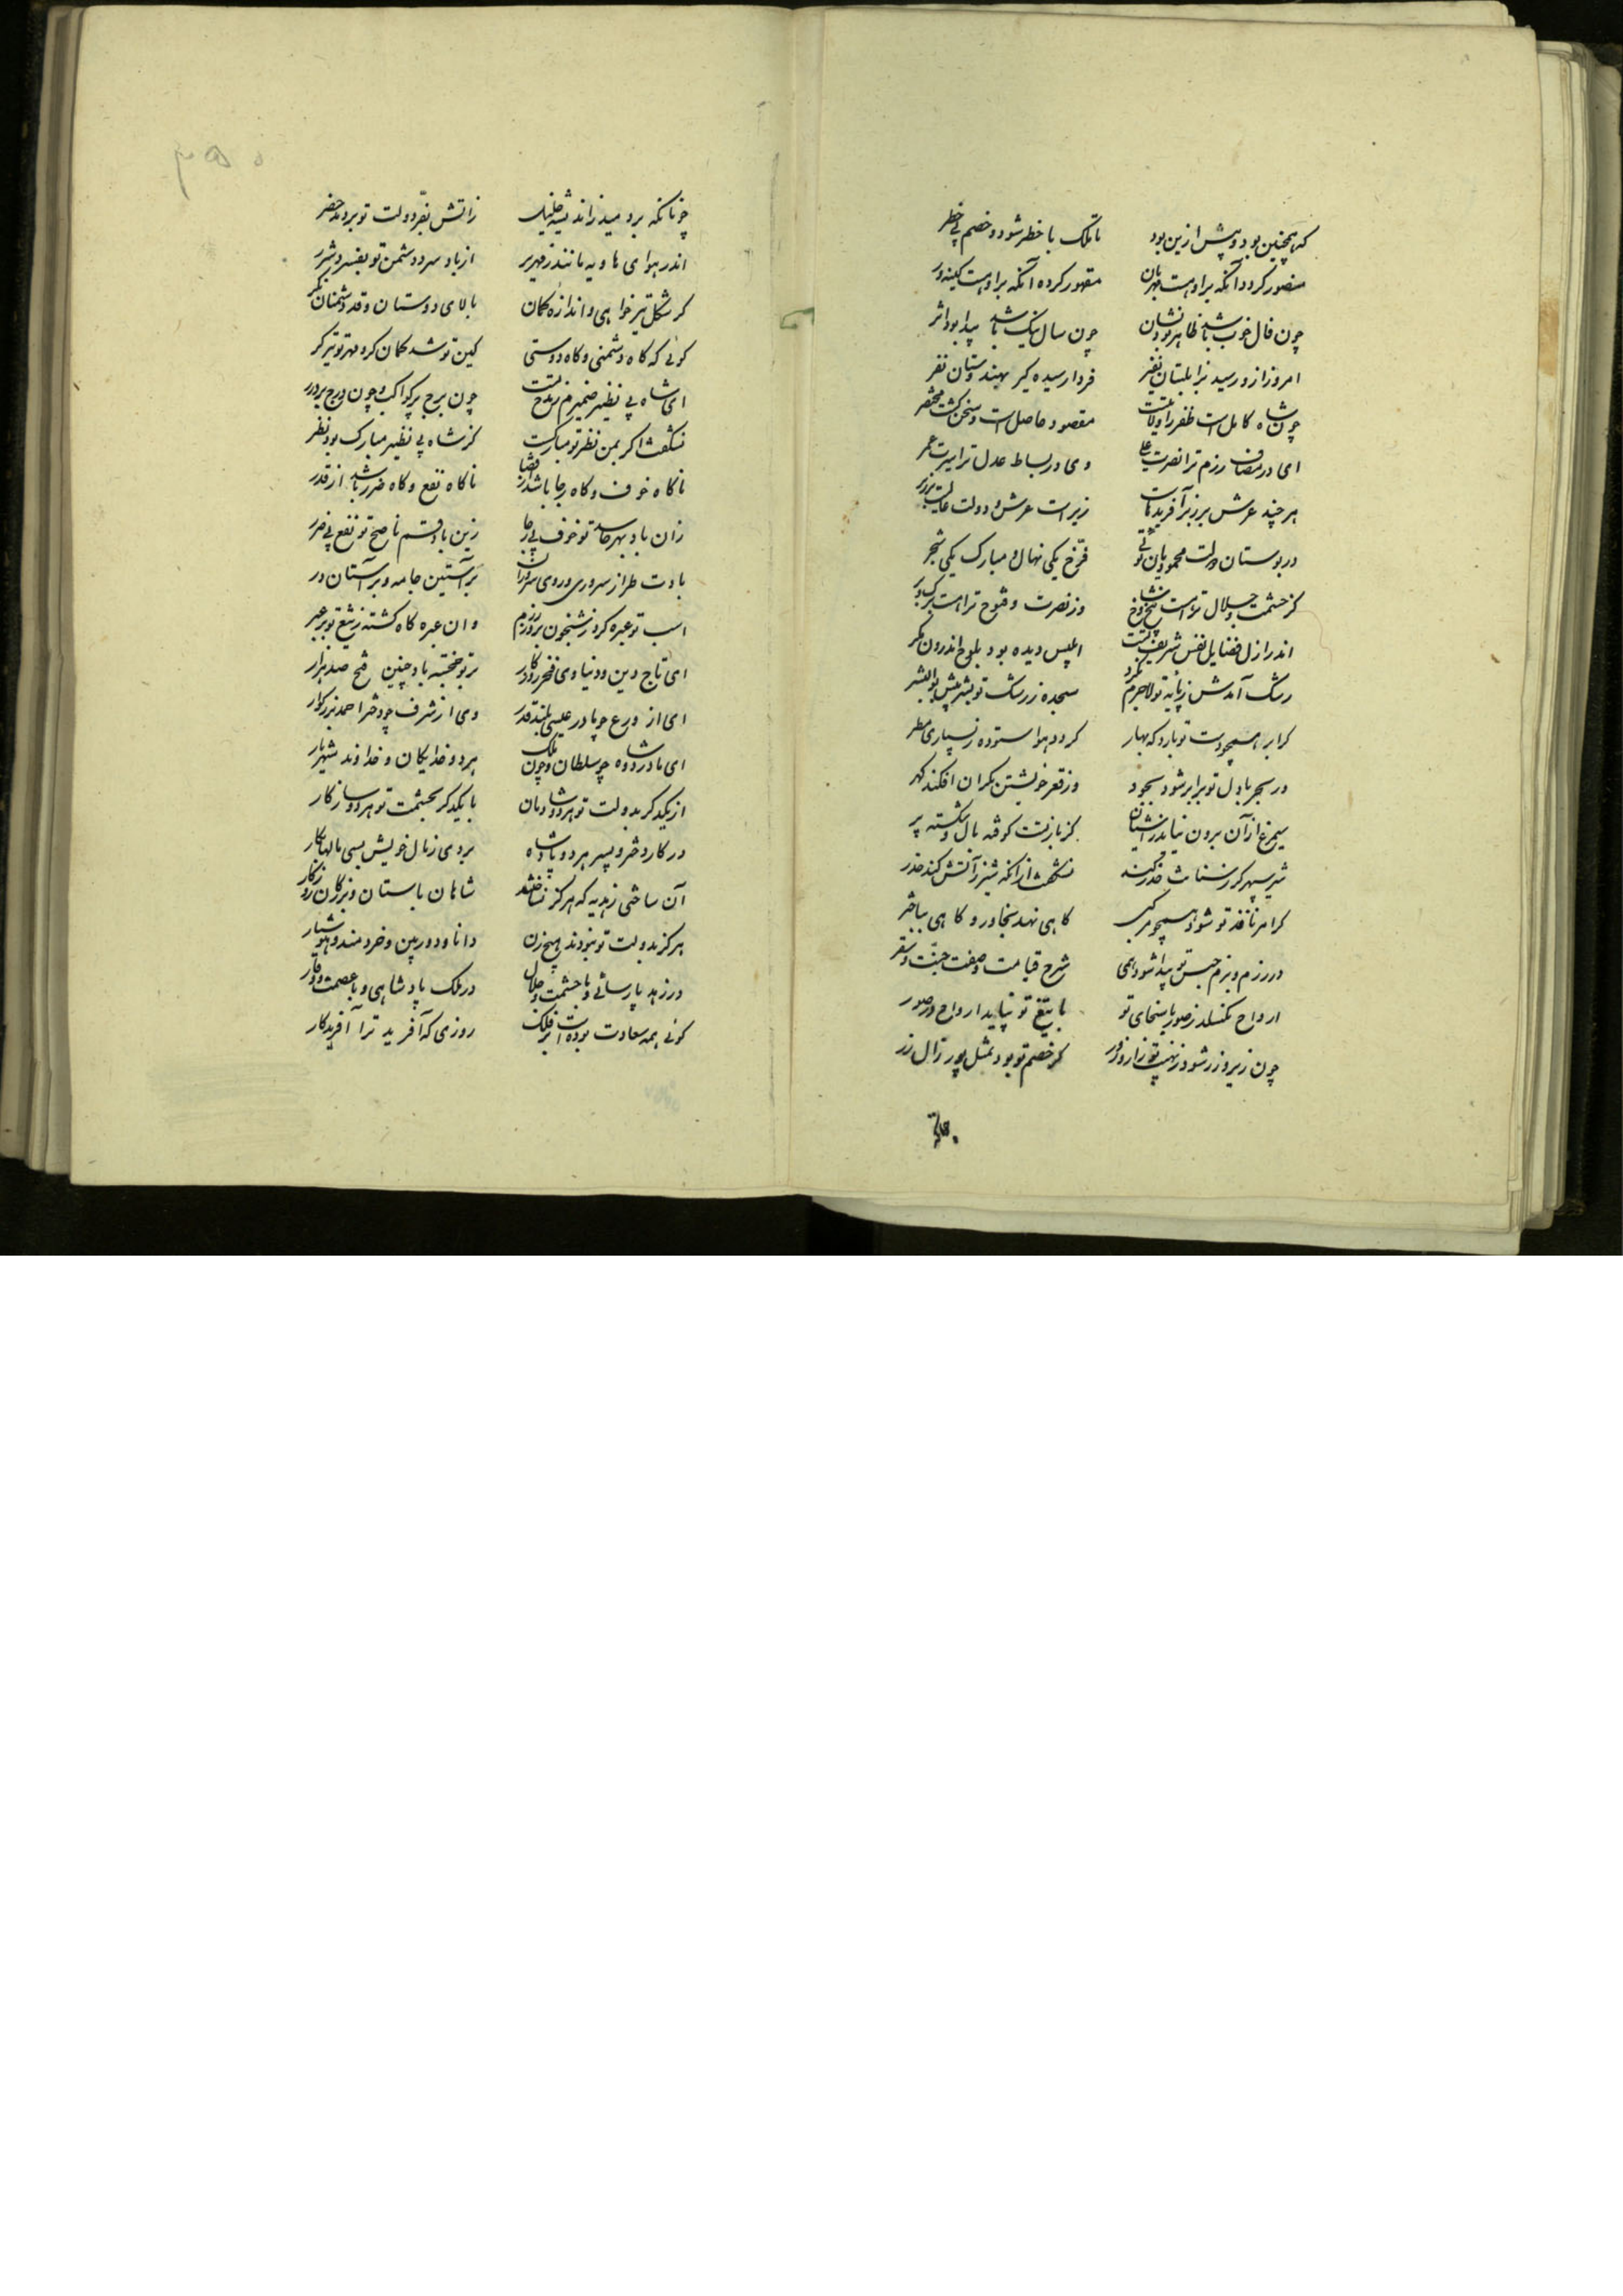 که همچنین بود و پیش ازین بود تا ملک با خطر شود و خصم بی خطر
منصور کردد آنکه براوهست مهربان مقهور کرده آنکه براوهست کینه ور
چون فال خوب باشد ظاهر بود نشان چون سال نیک باشد پیدا بود اثر
امروز از و رسید بزابلستان نفیر فردا رسیده کیر بهندوستان نفر
چون شاه کامل است ظفر را ولایتست مقصود حاصل است و سخن کشت مختصر
ای در مصاف رزم ترا نصرت علی وی در بساط عدل ترا سیرت عمر
هر چند عرش برزبر آفریدهاست زیر است عرش و دولت عالیت بر زبر
در بوستان دولت محمودیان توئی فرّخ یکی نهال و مبارک یکی شجر
کز حشمت و جلال تراست بیخ و شاخ وز نصرت و فتوح تراهست برک و بر
اندر ازل فضایل نفس شریفت ابلیس دیده بود بلوح اندرون مکر
رشک آمدش زپایه تو لاجرم نکرد سجده ز رشک تو بشر پیش بوالبشر
کر ابر همچو دست تو بارد که بهار کردد هوا ستوده ز بسیاری مطر
ور بحر با دل تو برابر شود بجود وز قعر خویشتن بکران افکند کهر
سیمرغ از آن برون نیاید ز آشیان کز بازتست کوفته بال و شکسته پر
شیر سپهر کر ز سنانت حذر کند نشکفت از آنکه شیر ز آتش کند حذر
کر امر نافذ تو شود همچو مرکبی کاهی نهد بخاور و کاهی بباختر
در رزم و بزم جستن تو پیدا شود همی شرح قیامت و صفت جنّت و سقر
ارواح نکسلد ز صور با سخای تو با تیغ تو نپاید ارواح در صور
چون زیر و زر شود ز نهیب تو زار و زرد کر خصم تو بود بمثل پور زال زر
چونانکه برد میدز اندیشه خلیل ز آتش بفرّ دولت تو بردمد خضر
اندر هوای هاویه مانند زمهریر از باد سرد دشمن تو بفسرد شرر
کر شکل تیر خواهی و اندازه کمان بالای دوستان و قد دشمنان نکر
کوئی که کاه دشمنی و کاه دوستی کین تو شد کمان کر و مهر تو تیر کر
ای شاه بی نظیر ضمیرم ز مدح تست چون برج پر کواکب و چون درج پر درر
نشکفت اکر بمن نظر تو مبارکست کز شاه بی نظیر مبارک بود نظر
تا کاه خوف و کاه رجا باشد از قضا تا کاه نفع و کاه ضرر باشد از قدر
زان باد بهر حاسد تو خوف بی رجا زین باد قسم ناصح تو نفع بی ضرر
بادت طراز سروری و روی سروران بر آستین جامه و بر آستان در
اسب تو عبره کرد ز شبخون بروز رزم وان عبره کاه کشته ز تیغ تو پر عبر
ای تاج دین و دنیا وی فخر روزکار بر تو خجسته باد چنین فتح صد هزار
ای از ورع چو مادر عیسی بلند قدر وی از شرف چو دختر احمد بزرکوار
ای مادر دو شاه چو سلطان و چون ملک هر دو خدایکان و خداوند شهریار
از یکدکر بدولت تو هر دو شادمان با یکدکر بحشمت تو هر دو سازکار
در کار دختر و پسر هر دو پادشاه بردی ز مال خویش بسی مالها بکار
آن ساختی ز هدیه که هرکز نساختند شاهان باستان و بزرکان روزکار
هرکز بدولت تو نبودند هیچ زن دانا و دوربین و خردمند و هوشیار
در زهد پارسائی و با حشمت و جلال در ملک پادشاهی و با عصمت و وقار
کوئی همه سعادت بوده است بر فلک روزی که آفرید ترا آفریدکار